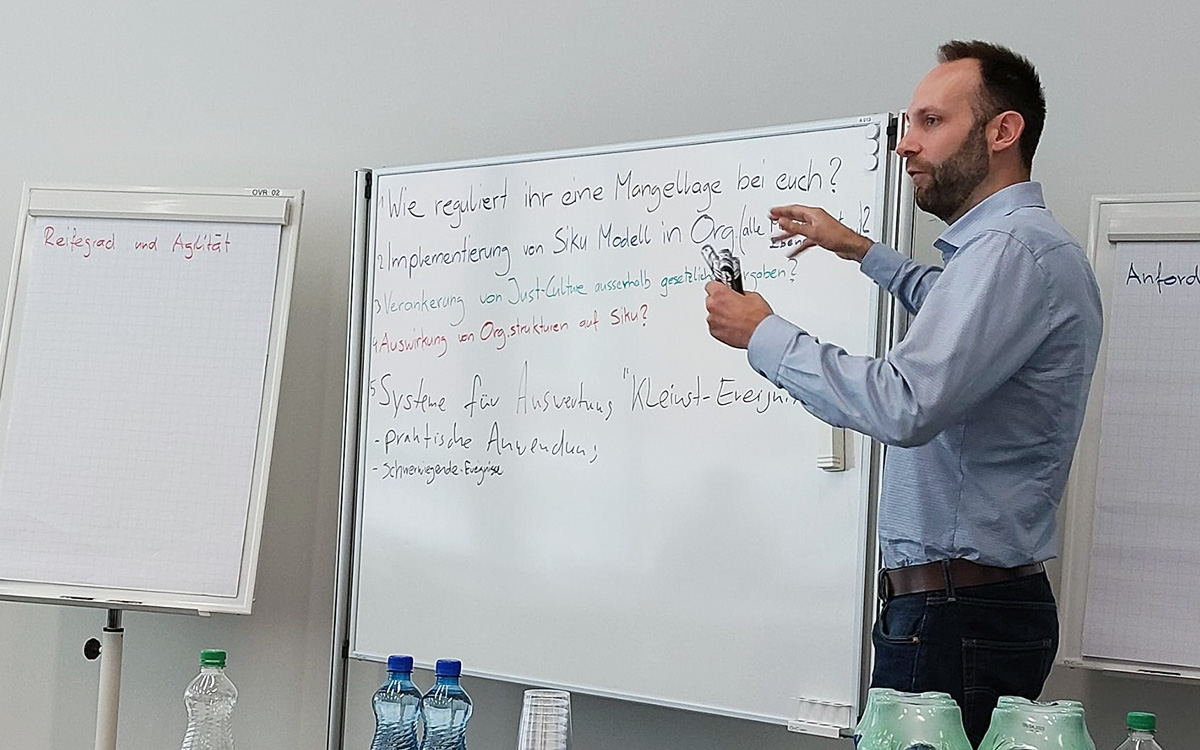 OVR 02
Reifegrad und Agilität
1 Wie reguliert ihr eine Mangellage bei euch?
2 Implementierung von Siku Modell in Org. (alle
Eben
3 Verankerung von Just-Culture ausserhalb gesetzlich rgaben?
4 Auswirkung von Org.strukturen auf Siku?
5 Systeme für Auswertung "Kleinst-Ereignis
- praktische Anwendung
- Schwerwiegende-Ereignisse
Anford